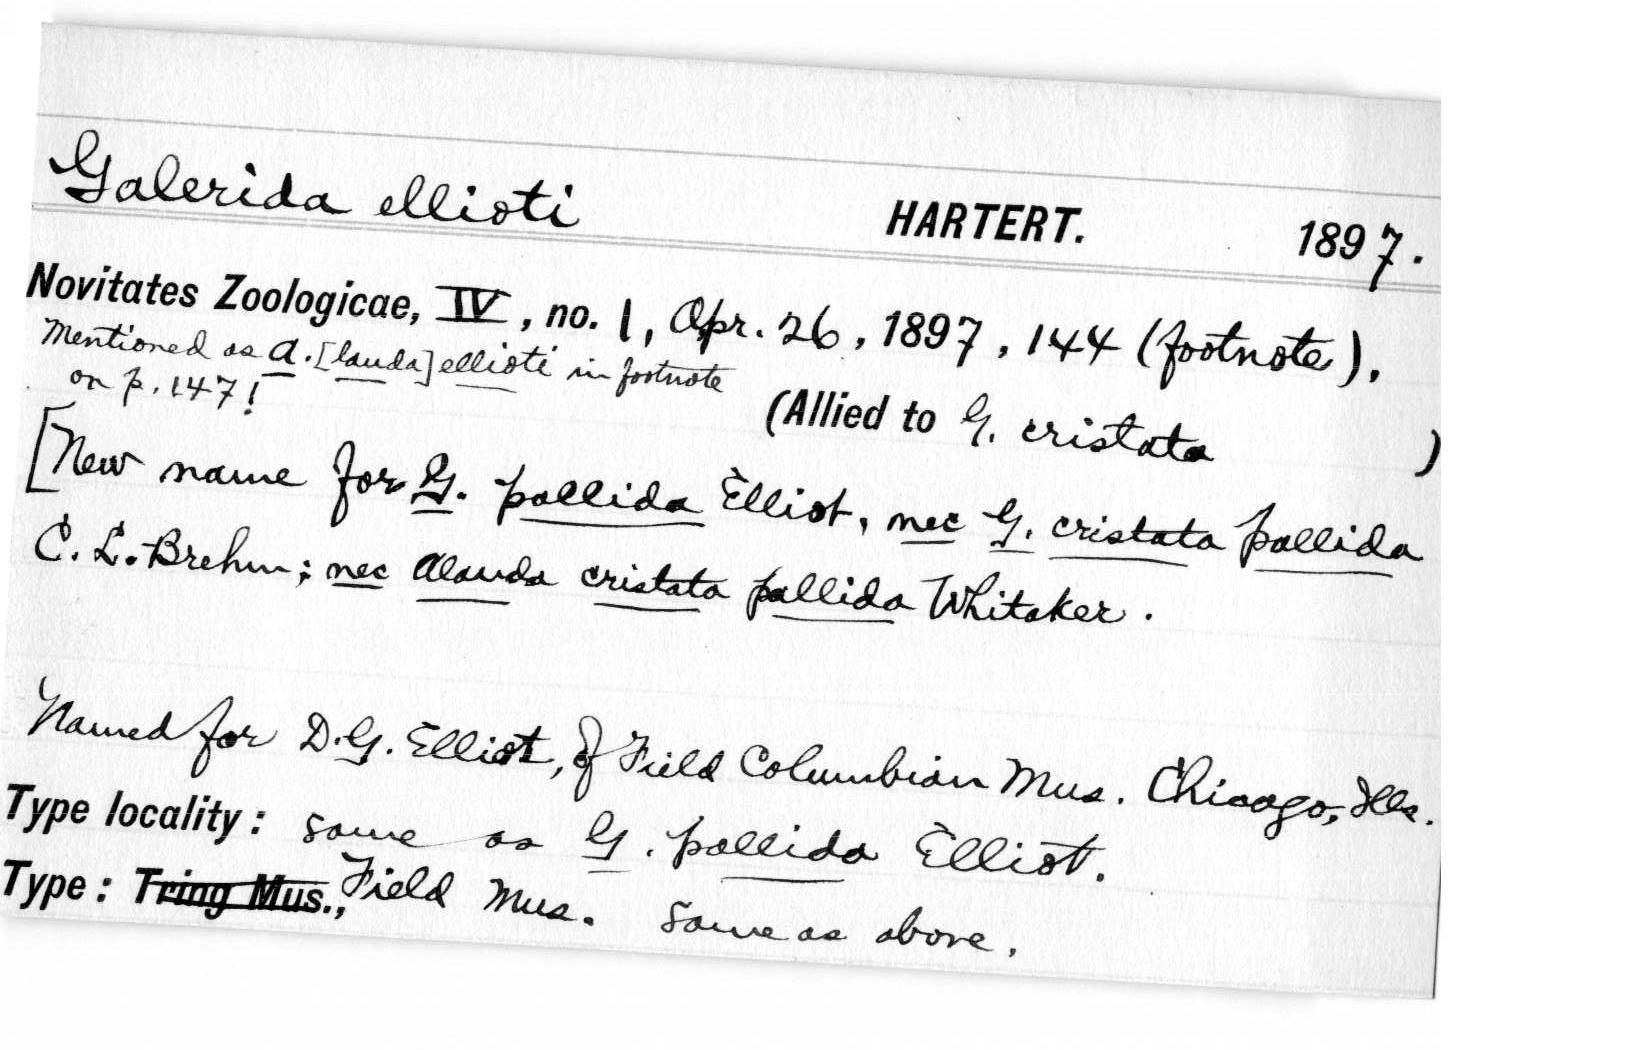 Galerida ellioti HARTERT. 1897.
Novitates Zoologicae, IV, no. 1, Apr. 26, 1897, 144 (footnote).
Mentioned as A. [lauda] ellioti in footnote
on p. 147!
(Allied to G. cristata )
[New name for G. pallida Elliot, nec G. cristata pallida
C. L. Brehm; nec Alauda cristata pallida Whitaker.
Named for D. G. Elliot, of Field Columbian Mus. Chicago, Ills.
Type locality: same as G. pallida Elliot.
Type: Tring Mus., Field Mus. same as above.